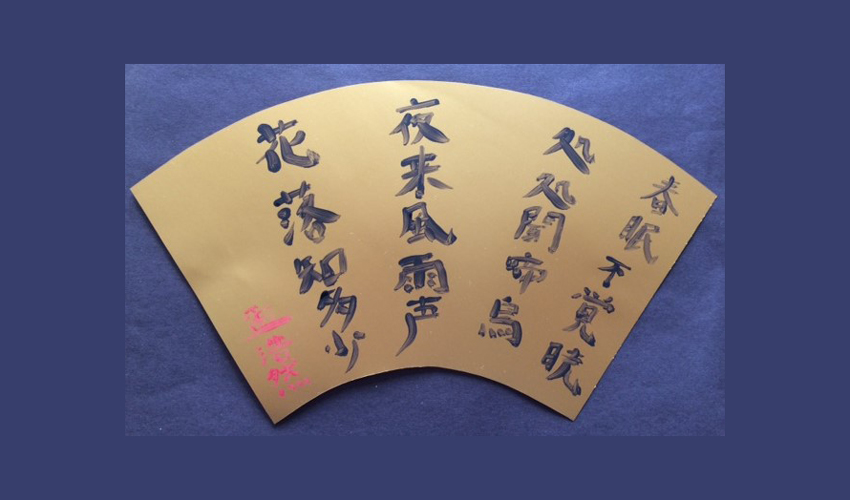 春眠不覚暁
処処聞啼鳥
夜来風雨声
花落知多少
孟浩然